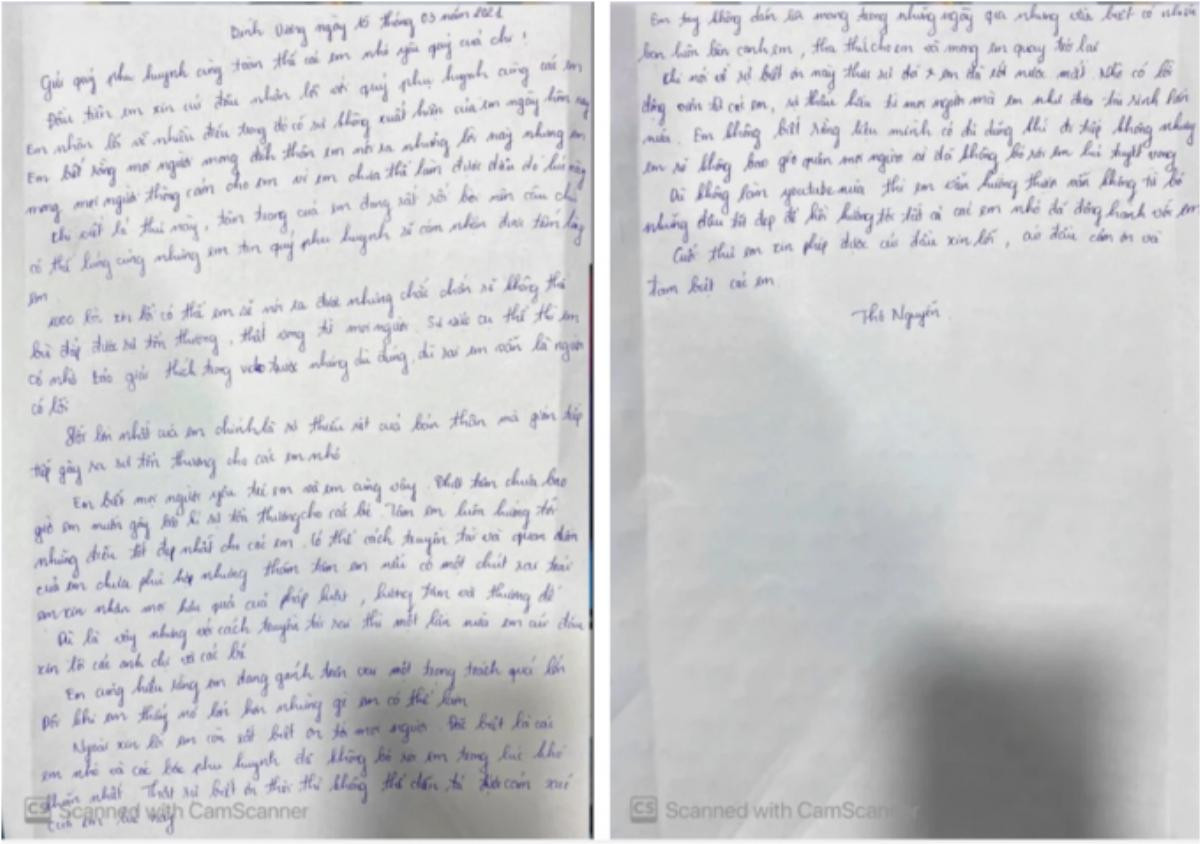 Bình Dương ngày 15 tháng 03 năm 2021
Gửi quý phụ huynh cùng toàn thể các em nhỏ yêu quý của chị!
Đầu tiên em xin cúi đầu nhận lỗi với quý phụ huynh cùng các em
Em nhận lỗi về nhiều điều trong đó có sự không xuất hiện của em ngày hôm nay
Em biết rằng mọi người mong đích thân em nói ra những lời này nhưng em
mong mọi người thông cảm cho em vì em chưa thể làm được điều đó lúc này
Khi viết lá thư này, tâm trạng của em đang rất rối bời nên câu chữ
có thể lủng củng nhưng em tin quý phụ huynh sẽ cảm nhận được tấm lòng
em
1000 lời xin lỗi có thể em sẽ nói ra được nhưng chắc chắn sẽ không thể
bù đắp được sự tổn thương, thất vọng từ mọi người. Sự việc cụ thể thì em
có nhờ báo giải thích trong video trước nhưng dù đúng, dù sai em vẫn là người
có lỗi
lớn nhất của em chính là sự thiếu sót của bản thân mà gián tiếp
tiếp gây ra sự tổn thương cho các em nhỏ
Em biết mọi người yêu trẻ em và em cũng vậy. Thật tâm chưa bao
giờ em muốn gây bất kì sự tổn thương cho các bé. Tâm em luôn hướng tới
những điều tốt đẹp nhất cho các em. Có thể cách truyền tải và quan điểm
của em chưa phù hợp nhưng thâm tâm em nếu có một chút sai trái
em xin nhận mọi hậu quả của pháp luật, lương tâm và thượng đế
Dù là vậy nhưng với cách truyền tải sai thì một lần nữa em cúi đầu
xin lỗi các anh chị và các bé
Em cũng hiểu rằng em đang gánh trên vai một trọng trách quá lớn
Đôi khi em thấy nó lớn hơn những gì em có thể làm
Ngoài xin lỗi em còn rất biết ơn tới mọi người. Đặc biệt là các
em nhỏ và các bác phụ huynh đã không bỏ rơi em trong lúc khó
khăn nhất. Thật sự biết ơn thôi thì không thể diễn tả được cảm xúc
của em lúc này
Scanned with CamScanner
Em tuy không dám lên mạng trong những ngày qua nhưng vẫn biết có nhiều
bạn luôn bên cạnh em, tha thứ cho em và mong em quay trở lại
Khi nói về sự biết ơn này thực sự đã em đã rớt nước mắt. Nhờ có lời
động viên từ các em, sự thấu hiểu từ mọi người mà em như được tái sinh lần
nữa. Em không biết rằng liệu mình có đủ dũng khí đi tiếp không nhưng
em sẽ không bao giờ quên mọi người vì đã không bỏ rơi em lúc tuyệt vọng
Dù không làm youtube nữa thì em vẫn hướng thiện vẫn không từ bỏ
những điều tốt đẹp để hồi hướng tới tất cả các em nhỏ đã đồng hành với em
Cuối thư em xin phép được cúi đầu xin lỗi, cúi đầu cảm ơn và
tạm biệt các em
Thơ Nguyễn
Scanned with CamScanner